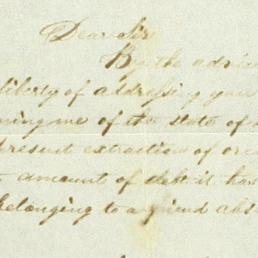 Dear Sir
By the advice
liberty of addressing you
ming me of the state of
present extraction of
amount of debt it has
belonging to a friend abs